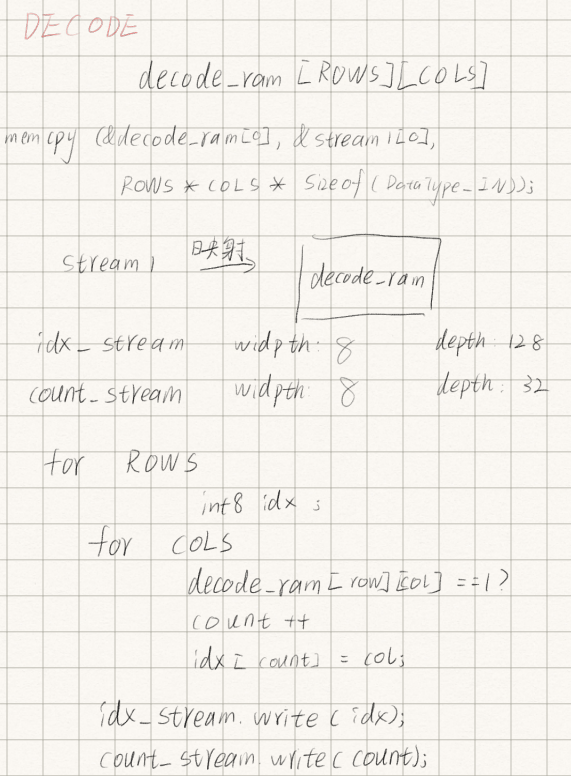 DECODE
decode_ram [ROWS][COLS]
memcpy (&decode_ram[0], &stream1[0],
ROWS * COLS * Sizeof (DataType_IN));
stream1 映射 decode_ram
idx_stream widpth: 8 depth: 128
count_stream widpth: 8 depth: 32
for ROWS
int8 idx ;
for COLS
decode_ram[row][col] ==1?
count ++
idx[count] = col;
idx_stream.write(idx);
count_stream.write(count);